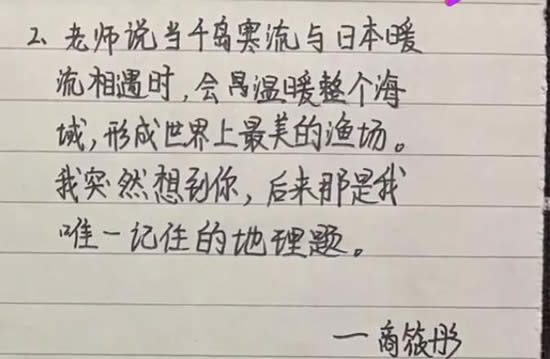 2、老师说当千岛寒流与日本暖
流相遇时,会温暖整个海
域,形成世界上最美的渔场。
我突然想到你,后来那是我
唯一记住的地理题。
一商筱彤